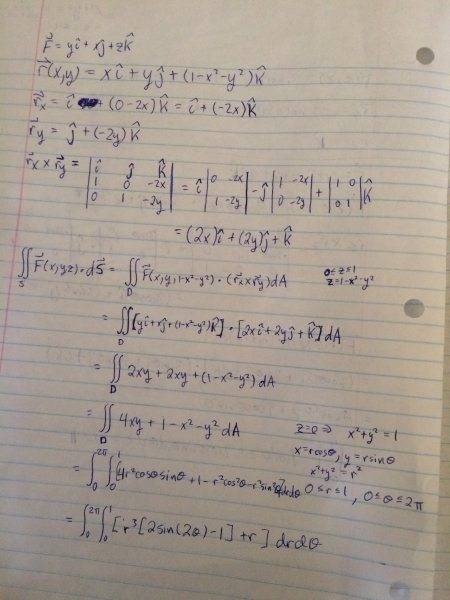 F⃗ = yî + xĵ + zK̂
r⃗(x,y) = xî + yĵ + (1-x²-y²)K̂
r⃗x = î + (0-2x)K̂ = î + (-2x)K̂
r⃗y = ĵ + (-2y)K̂
r⃗x × r⃗y = | î ĵ K̂ | 1 0 -2x | 0 1 -2y | = î | 0 -2x | 1 -2y | - ĵ | 1 -2x | 0 -2y | + | 1 0 | 0 1 | K̂
= (2x)î + (2y)ĵ + K̂
∬S F⃗(x,yz)•dS⃗ = ∬D F⃗(x,y,1-x²-y²)•(r⃗x×r⃗y)dA 0≤z≤1
z=1-x²-y²
= ∬D [yî+xĵ+(1-x²-y²)K̂]•[2xî+2yĵ+K̂]dA
= ∬D 2xy + 2xy + (1-x²-y²)dA
= ∬D 4xy + 1-x²-y² dA z=0 ⇒ x²+y²=1
x=rcosθ, y=rsinθ
x²+y²=r²
= ∫₀^2π ∫₀^1 [4r²cosθsinθ + 1-r²cos²θ-r²sin²θ]rdrdθ 0≤r≤1, 0≤θ≤2π
= ∫₀^2π ∫₀^1 [r³[2sin(2θ)-1]+r]drdθ